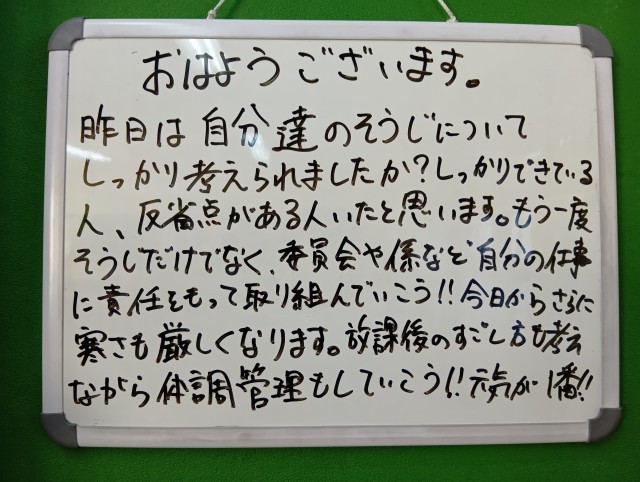 おはようございます。
昨日は自分達のそうじについて
しっかり考えられましたか?しっかりできている
人、反省点がある人いたと思います。もう一度
そうじだけでなく、委員会や係など自分の仕事
に責任をもって取り組んでいこう!!今日からさらに
寒さも厳しくなります。放課後のすごし方も考え
ながら体調管理もしていこう!!元気が1番!!